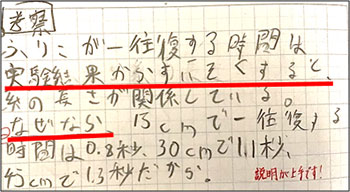 考察
ふりこが一往復する時間は
実験結果からすいそくすると、
糸の長さが関係している。
なぜなら 15cmで一往復する
時間は0.8秒、30cmで1.1秒、
45cmで1.3秒だから。
説明が上手です!